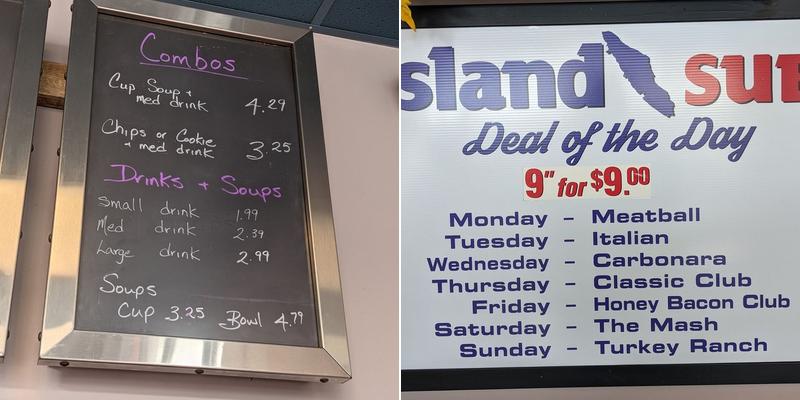 Combos
Cup Soup +
med drink 4.29
Chips or Cookie
+ med drink 3.25
Drinks + Soups
Small drink 1.99
Med drink 2.39
Large drink 2.99
Soups
Cup 3.25 Bowl 4.79
sland SUB
Deal of the Day
9" for $9.00
Monday - Meatball
Tuesday - Italian
Wednesday - Carbonara
Thursday - Classic Club
Friday - Honey Bacon Club
Saturday - The Mash
Sunday - Turkey Ranch